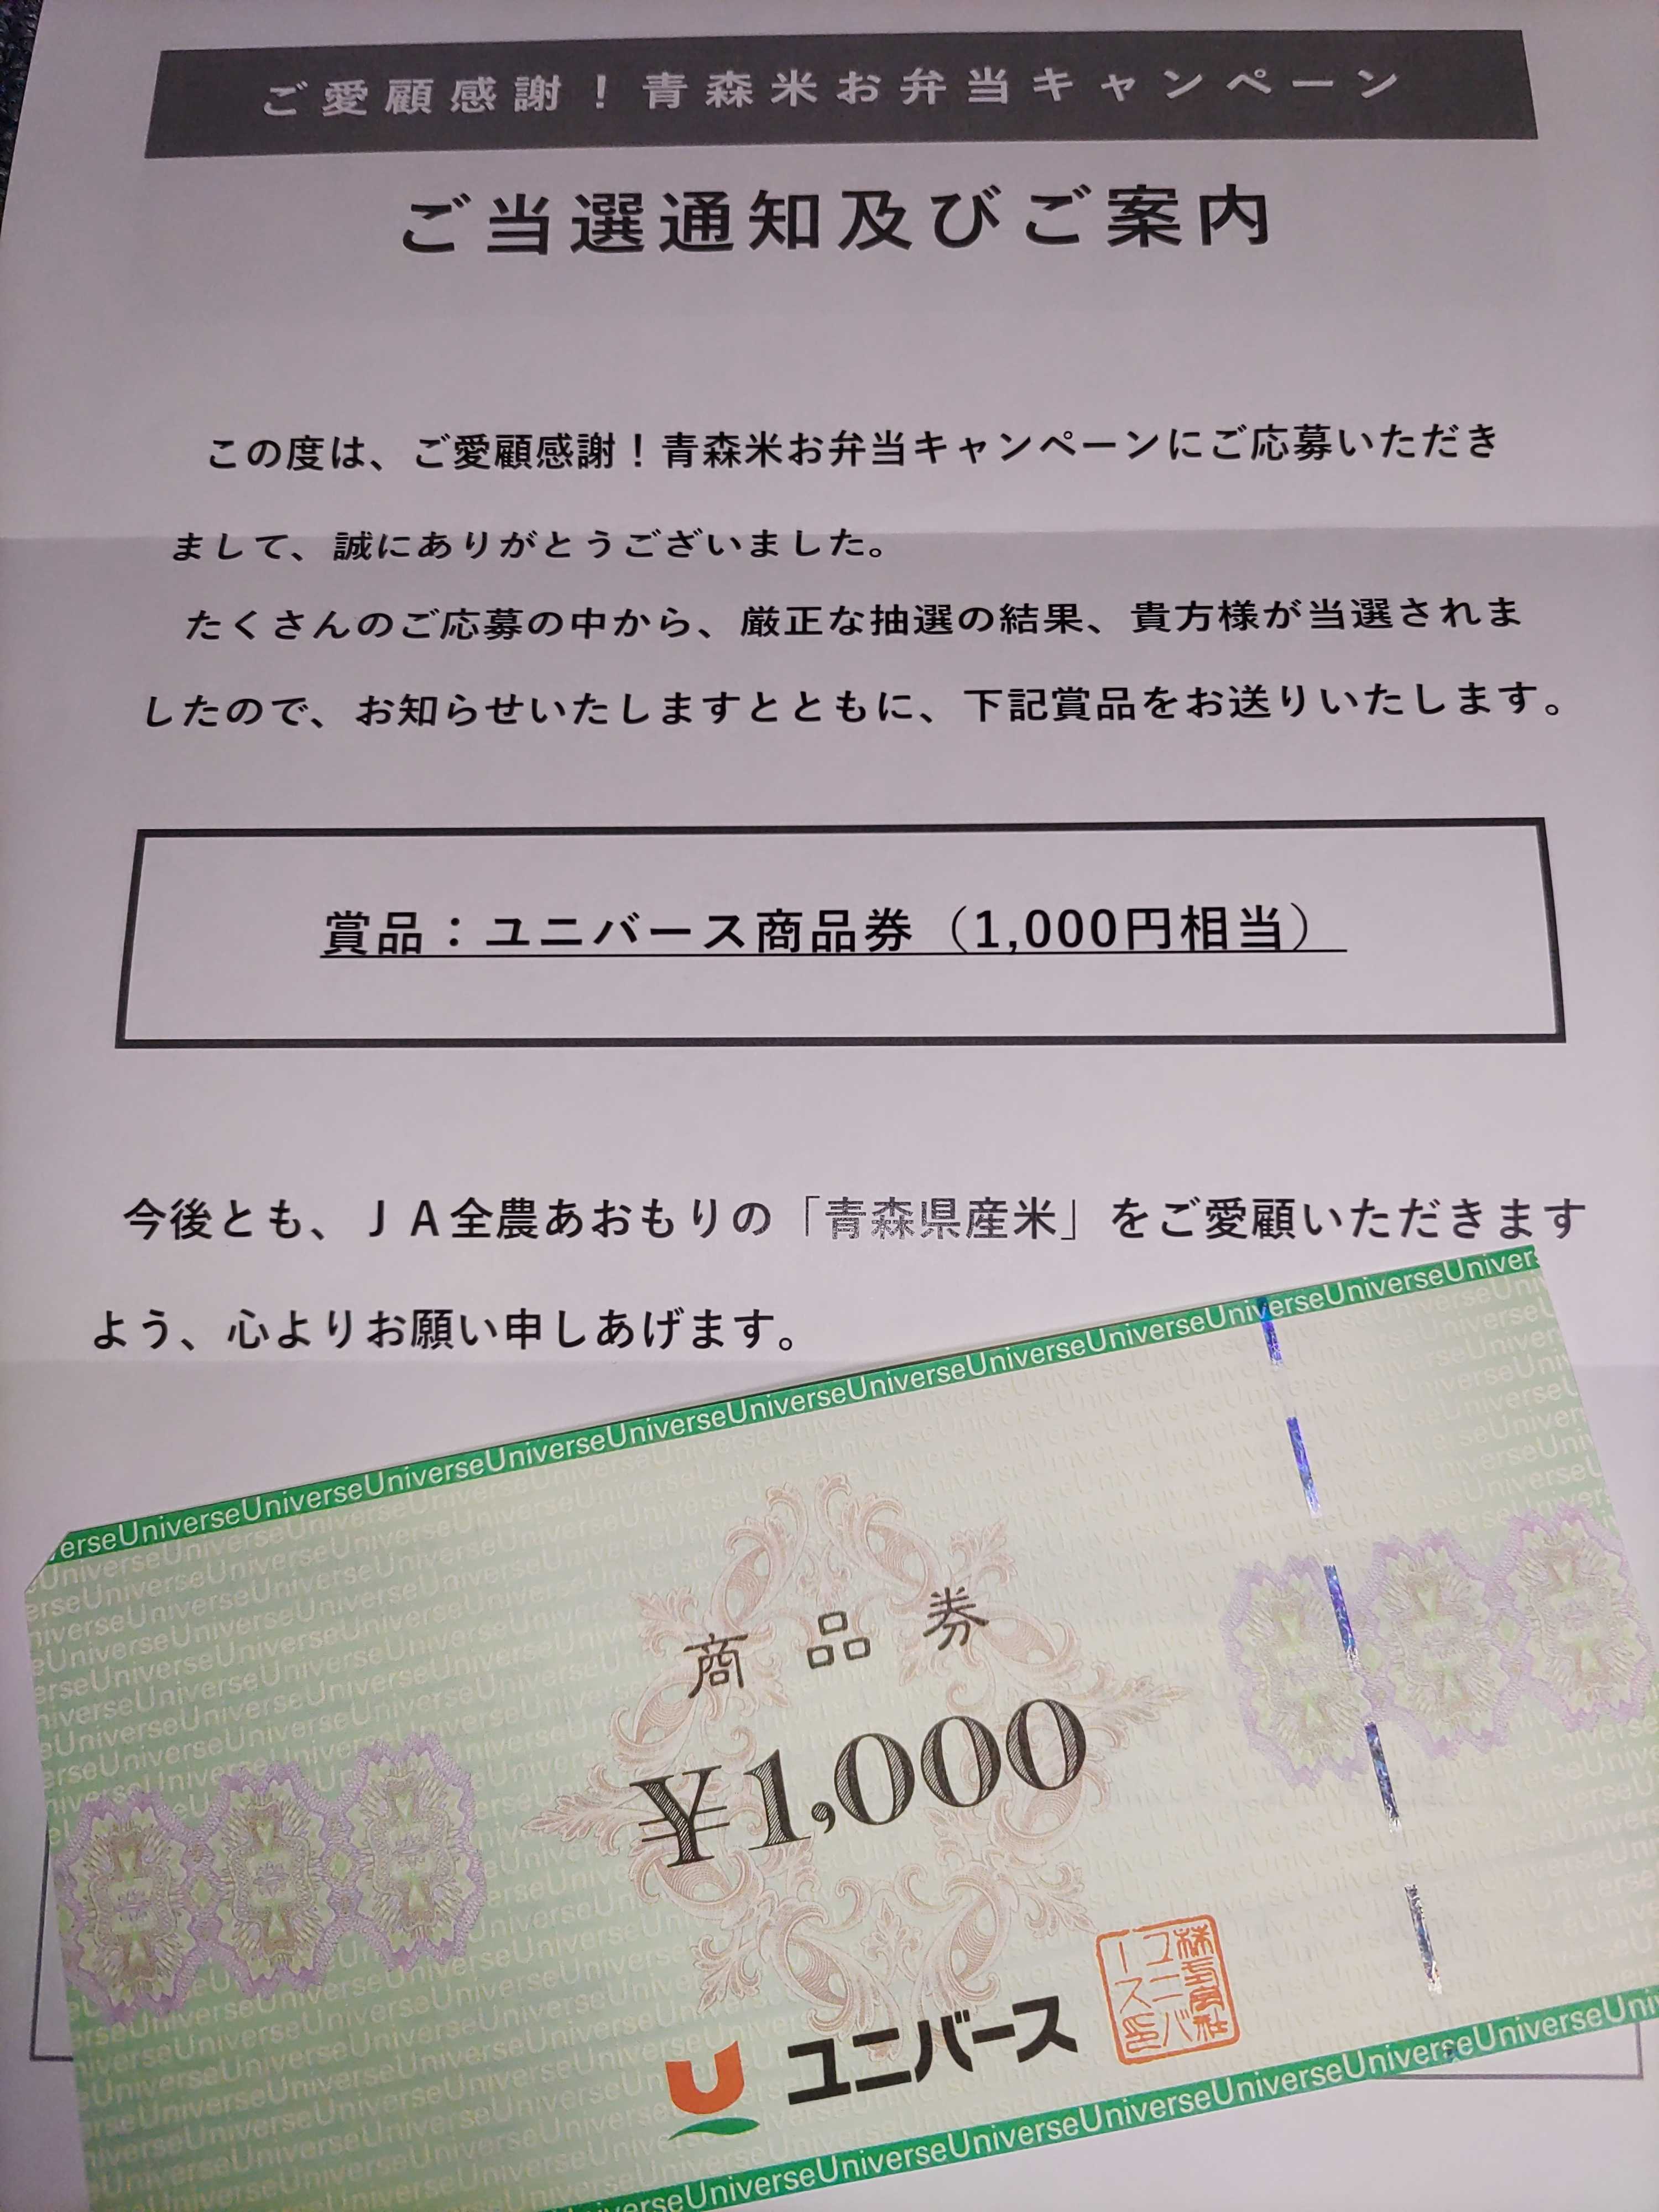 ご愛顧感謝！青森米お弁当キャンペーン
ご当選通知及びご案内
この度は、ご愛顧感謝！青森米お弁当キャンペーンにご応募いただき
まして、誠にありがとうございました。
たくさんのご応募の中から、厳正な抽選の結果、貴方様が当選されま
したので、お知らせいたしますとともに、下記賞品をお送りいたします。
賞品：ユニバース商品券（1,000円相当）
今後とも、ＪＡ全農あおもりの「青森県産米」をご愛顧いただきます
よう、心よりお願い申しあげます。
erseUniverseUniverseUniverseUniverseUniverseUniverseUniverseUniverseUniverseUniverseUniverseUniver
商品券
¥1,000
ユニバース
株式会社ユニバース印
UniverseUniverseUniverseUniverseUniverseUniverseUniverseUniverseUni